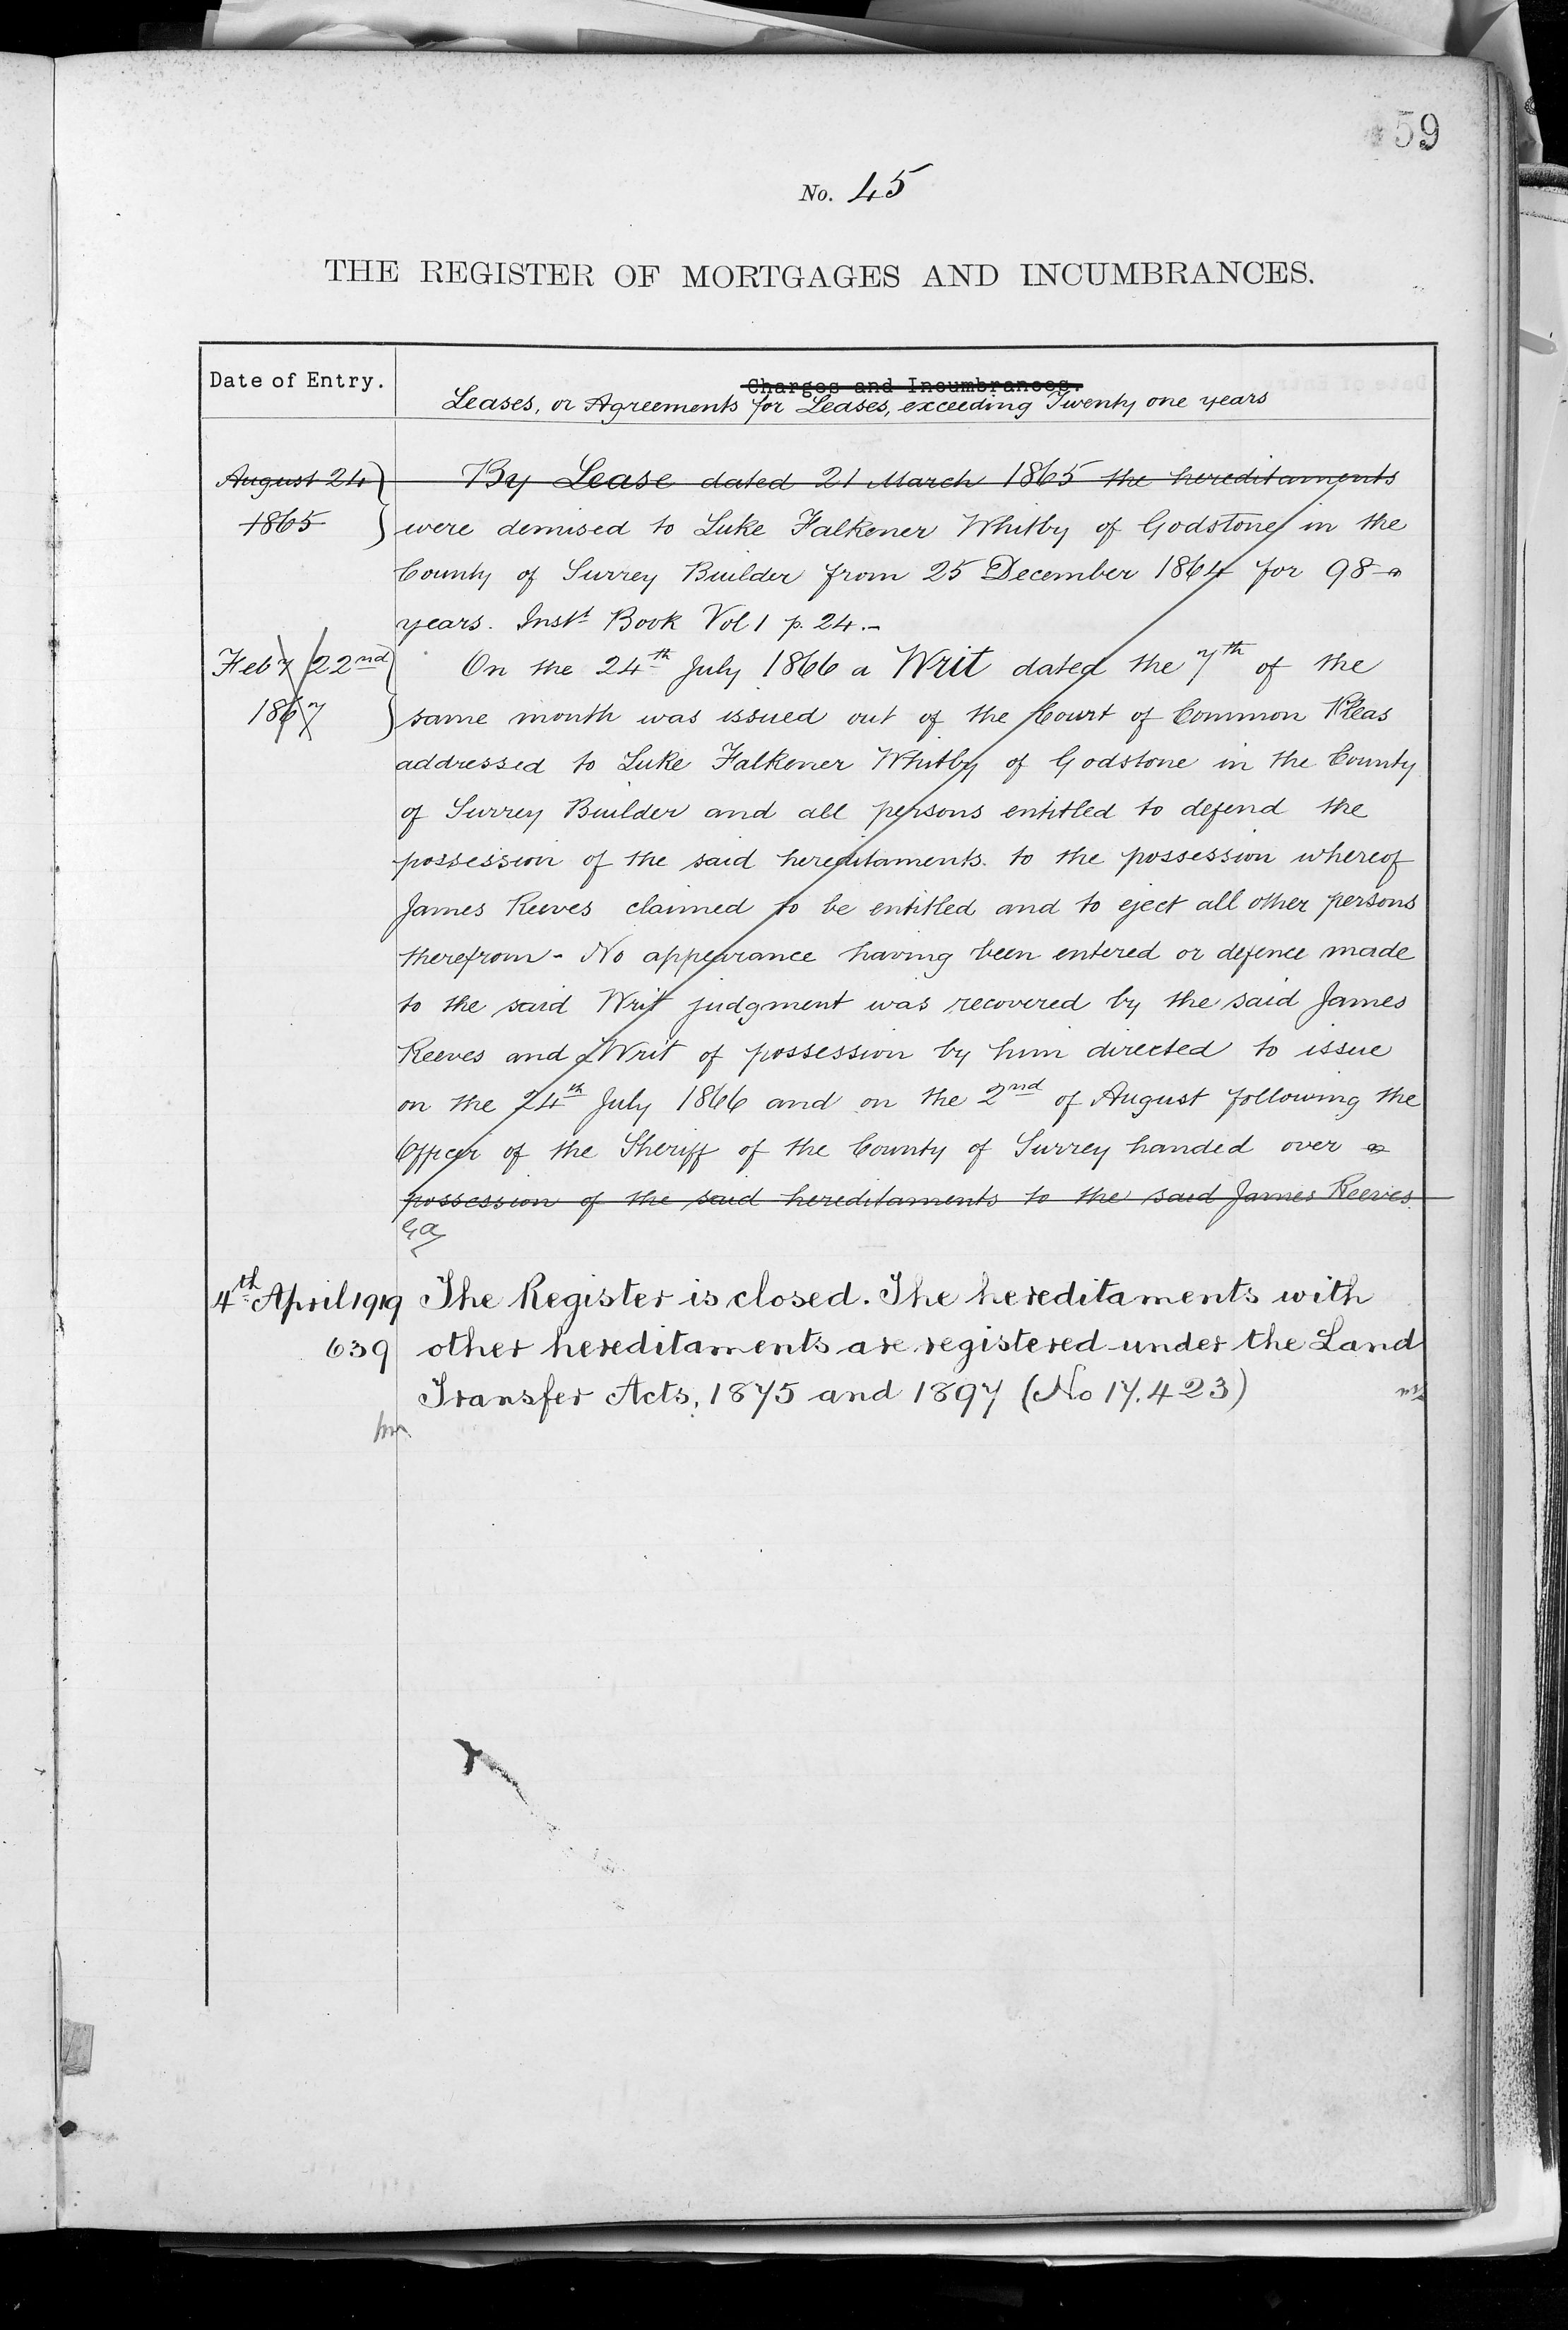 59
No. 45
THE REGISTER OF MORTGAGES AND INCUMBRANCES.
Date of Entry.
Charges and Incumbrances.
Leases, or Agreements for Leases, exceeding Twenty one years
August 24 By Lease dated 21 March 1865 the hereditaments
1865 were demised to Luke Falkener Whitby of Godstone in the
County of Surrey Builder from 25 December 1864 for 98
years. Instt Book Vol 1 p. 24.-
Feby 22nd On the 24th July 1866 a Writ dated the 7th of the
1867 same month was issued out of the Court of Common Pleas
addressed to Luke Falkener Whitby of Godstone in the County
of Surrey Builder and all persons entitled to defend the
possession of the said hereditaments to the possession whereof
James Reeves claimed to be entitled and to eject all other persons
therefrom - No appearance having been entered or defence made
to the said Writ judgment was recovered by the said James
Reeves and a Writ of possession by him directed to issue
on the 24th July 1866 and on the 2nd of August following the
Officer of the Sheriff of the County of Surrey handed over
possession of the said hereditaments to the said James Reeves.
4th April 1919 The Register is closed. The hereditaments with
639 other hereditaments are registered under the Land
Transfer Acts, 1875 and 1897 (No 17.423)